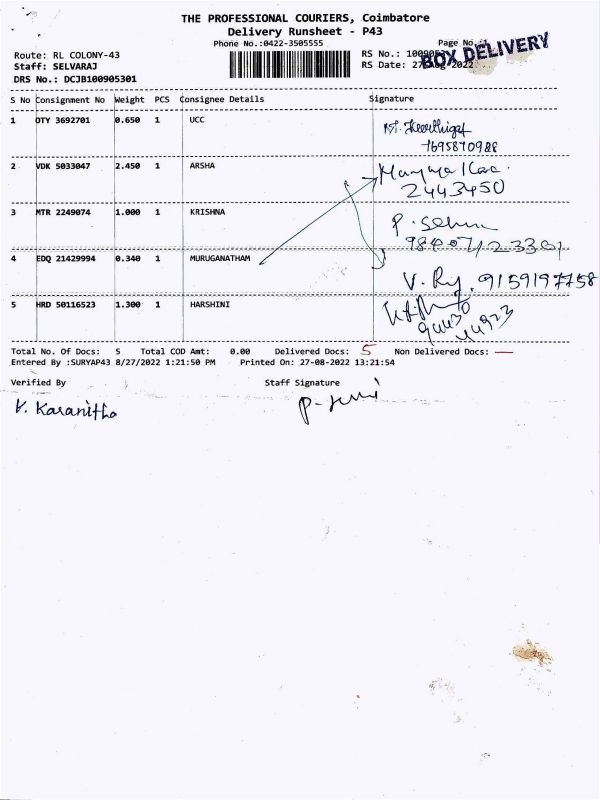 THE PROFESSIONAL COURIERS, Coimbatore
Delivery Runsheet - P43
Phone No.:0422-3505555
Page No.:1
BOX DELIVERY
Route: RL COLONY-43
RS No.:
Staff: SELVARAJ
RS Date: 27-Aug-2022
DRS No.: DCJB100905301
S No Consignment No Weight PCS Consignee Details Signature
1 OTY 3692701 0.650 1 UCC
7695870988
2 VDK 5033047 2.450 1 ARSHA
2443450
3 MTR 2249074 1.000 1 KRISHNA
4 EDQ 21429994 0.340 1 MURUGANATHAM
9159197758
5 HRD 50116523 1.300 1 HARSHINI
94430
44923
Total No. Of Docs: 5 Total COD Amt: 0.00 Delivered Docs: 5 Non Delivered Docs: —
Entered By :SURYAP43 8/27/2022 1:21:50 PM Printed On: 27-08-2022 13:21:54
Verified By Staff Signature
V. Karanitha